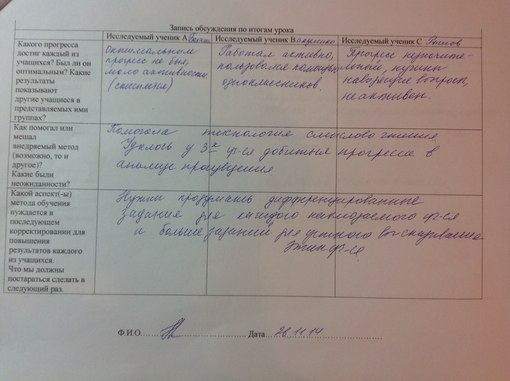 Запись обсуждения по итогам урока
Исследуемый ученик А
Исследуемый ученик В
Исследуемый ученик С
Какого прогресса
достиг каждый из
учащихся? Был ли он
оптимальным? Какие
результаты
показывают
другие учащиеся в
представляемых ими
группах?
Оптимальным
прогресс не был,
мало активности
Работал активно,
пользовался помощью
одноклассников
Прогресс
нужны
наводящие вопросы,
неактивен.
Как помогал или
мешал
внедряемый метод
(возможно, то и
другое)?
Какие были
неожиданности?
Помогала технология смыслового чтения
Удалось у 3х уч-ся добиться прогресса в
анализе произведения
Какой аспект(-ы)
метода обучения
нуждается в
последующем
корректировании для
повышения
результатов каждого
из учащихся.
Что мы должны
постараться сделать в
следующий раз.
Нужно продумать дифференцированные
задания для каждого наблюдаемого уч-ся
и больше заданий для устного высказывания
этих уч-ся
Ф.И.О. Дата 26.11.14